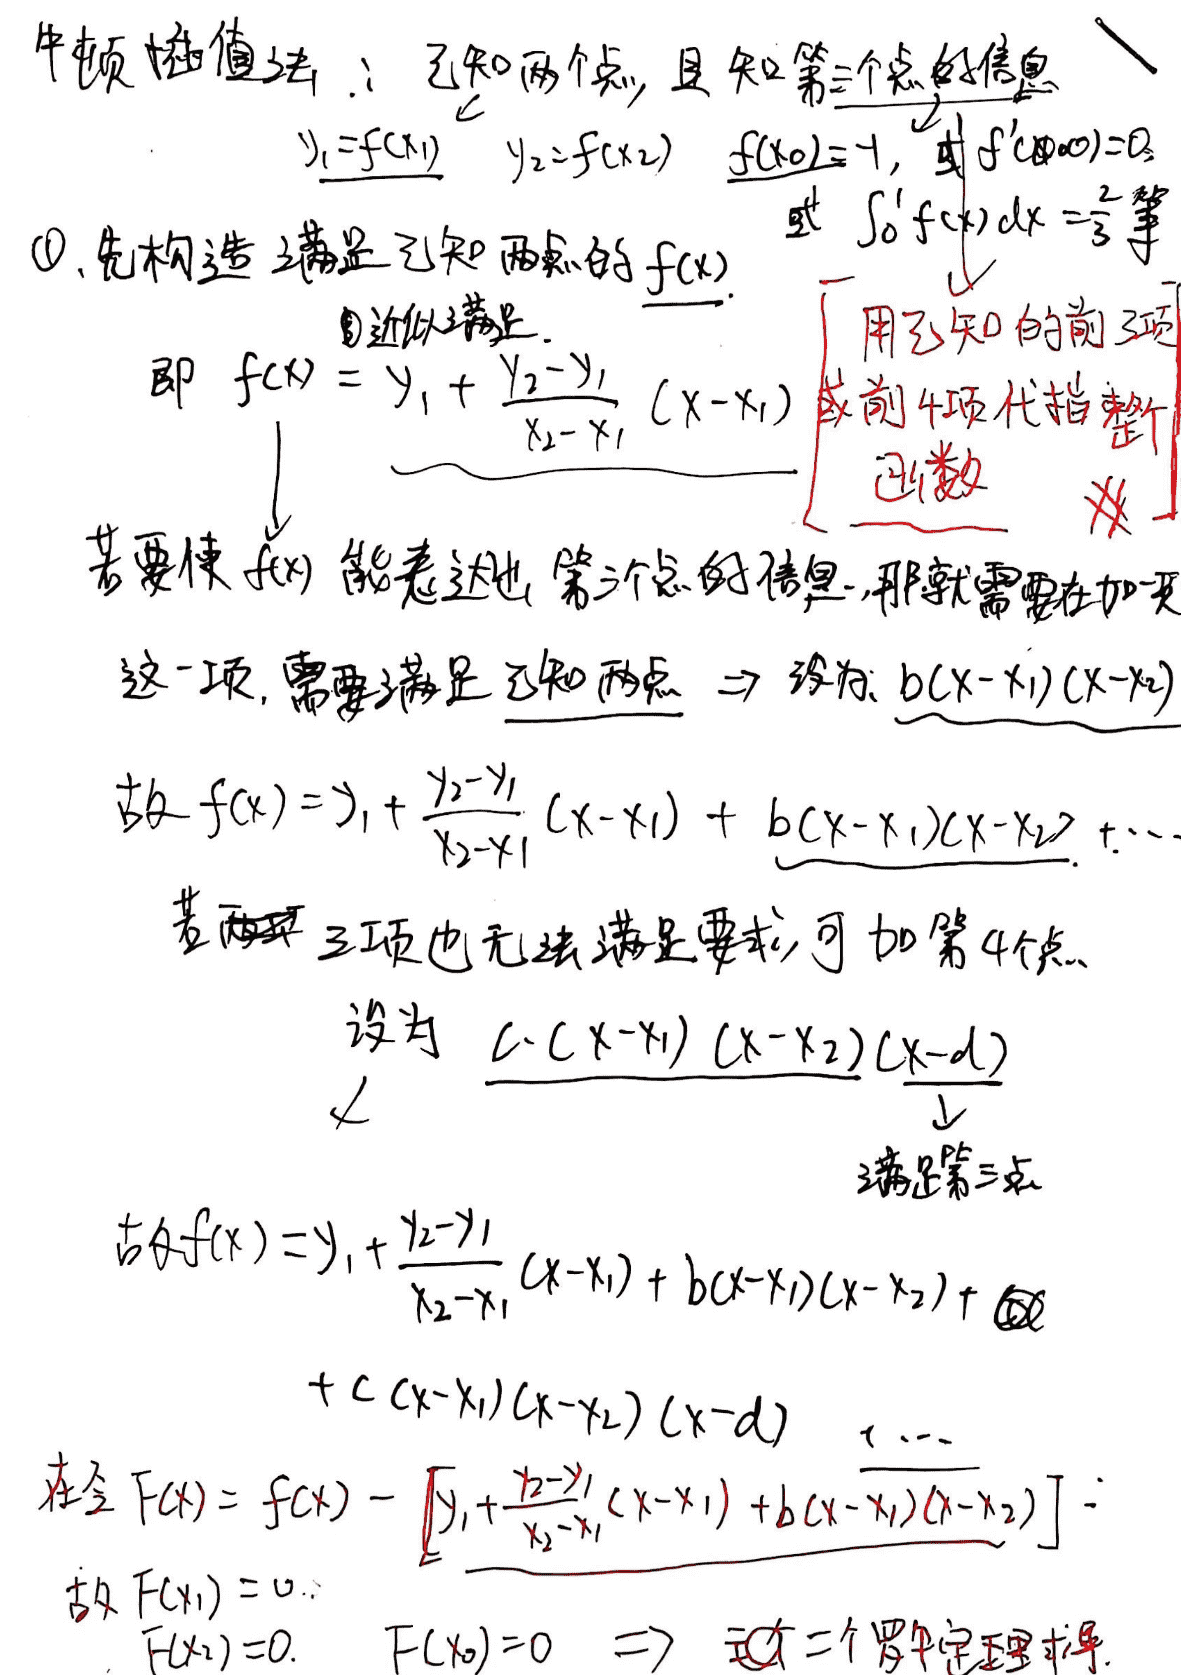 牛顿插值法: 已知两个点, 且知第三个点的信息
y₁=f(x₁) y₂=f(x₂) f(x₀)=-1, 或 f'(x₀)=0.
或 ∫₀¹f(x)dx=2/3等
①. 先构造满足已知两点的f(x).
近似满足.
即 f(x) = y₁ + (y₂-y₁)/(x₂-x₁) (x-x₁)
[用已知的前3项
或前4项代指整个
函数]
若要使f(x)能表达出第三个点的信息, 那就需要在加一项
这一项, 需要满足已知两点 ⇒ 设为: b(x-x₁)(x-x₂)
故f(x)=y₁+(y₂-y₁)/(x₂-x₁)(x-x₁)+b(x-x₁)(x-x₂)+....
若三项也无法满足要求, 可加第4个点.
设为 c·(x-x₁)(x-x₂)(x-d)
满足第三点
故f(x)=y₁+(y₂-y₁)/(x₂-x₁)(x-x₁)+b(x-x₁)(x-x₂)+
+c(x-x₁)(x-x₂)(x-d) +....
在令F(x)=f(x)-[y₁+(y₂-y₁)/(x₂-x₁)(x-x₁)+b(x-x₁)(x-x₂)]
故F(x₁)=0.
F(x₂)=0. F(x₀)=0 ⇒ 二个罗尔定理求导.